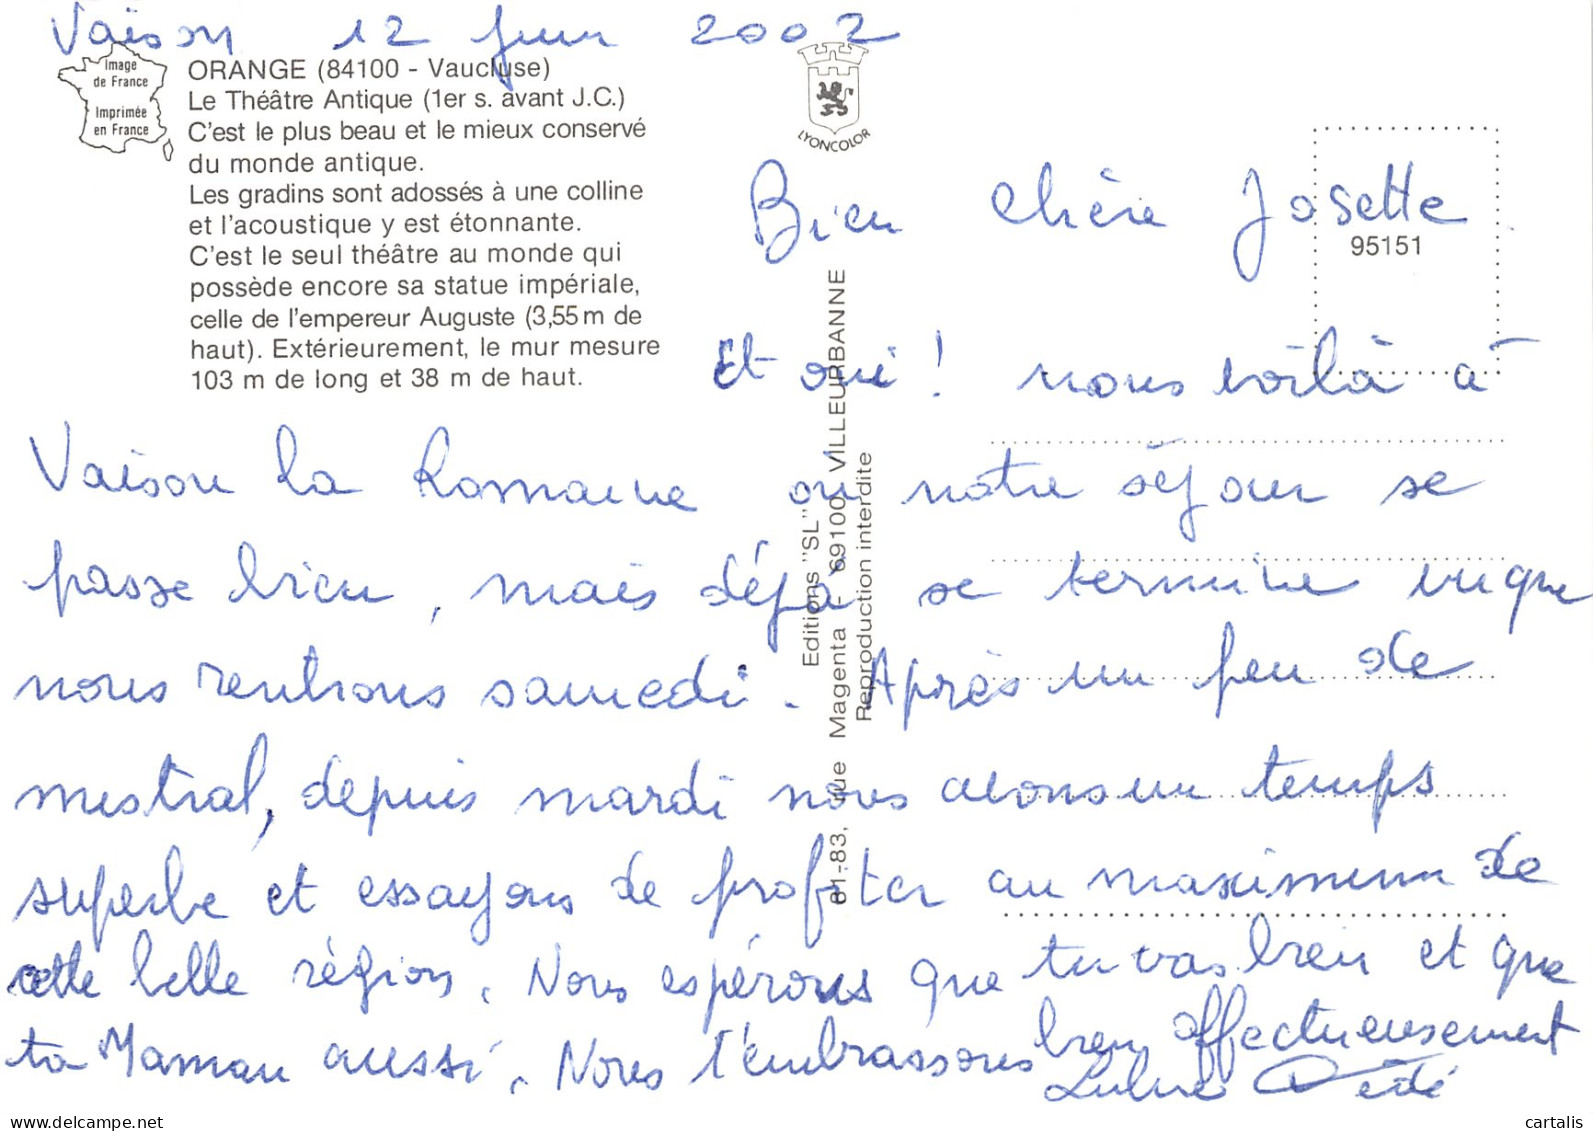 Vaison 12 Juin 2002
Image
de France
Imprimée
en France
ORANGE (84100 - Vaucluse)
Le Théâtre Antique (1er s. avant J.C.)
C'est le plus beau et le mieux conservé
du monde antique.
Les gradins sont adossés à une colline
et l'acoustique y est étonnante.
C'est le seul théâtre au monde qui
possède encore sa statue impériale,
celle de l'empereur Auguste (3,55 m de
haut). Extérieurement, le mur mesure
103 m de long et 38 m de haut.
LYONCOLOR
95151
Editions "SL"
81-83, rue Magenta - 69100 VILLEURBANNE
Reproduction interdite
Bien chère Josette
Et oui ! nous voilà à
Vaison la Romaine où notre séjour se
passe bien, mais déjà se termine vu que
nous rentrons samedi. Après un peu de
mistral, depuis mardi nous avons un temps
superbe et essayons de profiter au maximum de
cette belle région. Nous espérons que tu vas bien et que
ta Maman aussi. Nous t'embrassons bien affectueusement
Dédé
cartalis
www.delcampe.net